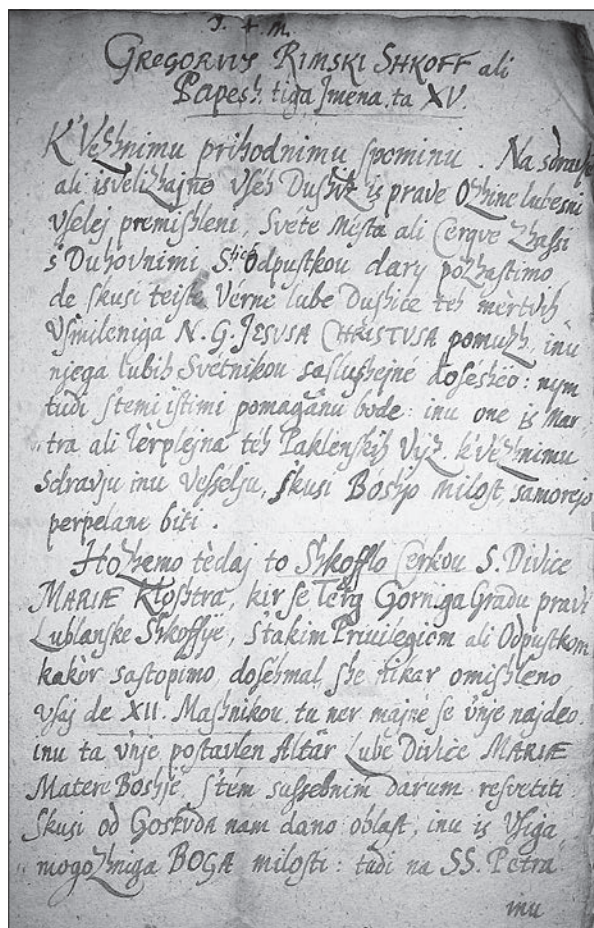 J. + m.
GREGORIVS RIMSKI SHKOFF ali
Papesh tiga Jmena ta XV.
K'Vezhnimu prihodnimu ſpominu. Na sdravje
ali isvelizhajno vſeh Duſhiz is prave Ozhine lubesni
vſelej premiſhleni, Svete Méſta ali Cerqve zhaſſi
s'Duhovnimi Odpuſtkou dary pozhaſtimo
de ſkusi teiſte Vérne lube Duſhice teh mèrtvih
Vſmileniga N. G. JESVSA CHRISTVSA pomuzh, inu
njega lubih Svetnikou saſlushejné doſesheo: nym
tudi ſ'temi iſtimi pomagánu bode: inu one is Mar
tra ali Tèrplejna téh Paklenſkih Vyz, k'vezhnimu
Sdravju inu Veſſelju, ſkusi Boshjo miloſt, samorejo
perpelane biti.
Hozhemo tèdaj to Shkofflo Cerkou S. Divice
MARIÆ Kloshtra, kir ſe Tèrg Gorniga Gradu pravi
Lublanſke Shkoffye, ſ'takim Privilegiom ali Odpuſtkom
kakòr saſtopimo, doſehmal, ſhe nikar omiſhleno
vſaj de XII. Maſhnikou, tu ner majné ſe v'nje najdeo.
inu ta v'nje poſtavlen Altàr Lube Divice MARIÆ
Matere Boshje, ſ'tém suſſebnim darum reſvetiti
ſkusi od Goſpvda nam dano oblaſt, inu is Vſiga
mogozhniga BOGA miloſti: tudi na SS. Petra
inu